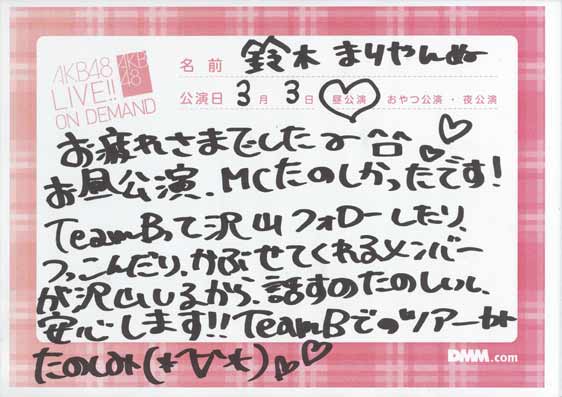 AKB48
LIVE!!
ON DEMAND
AKB
48
名前 鈴木まりやんぬ
公演日 3月3日 昼公演 おやつ公演・夜公演
お疲れさまでした〜 ^^
お昼公演、MCたのしかったです!
TeamBって沢山フォローしたり、
つっこんだり、かぶせてくれるメンバー
が沢山いるから、話すのたのしいし、
安心します!!TeamBでのツアーが
たのしみ(*∀*)♡♡
DMM.com